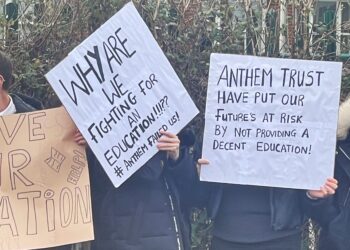 VE
R
ATION
WHY ARE
WE
FIGHTING FOR
AN
EDUCATION!!!??
# ANTHEM FAILED US!
ANTHEM TRUST
HAVE PUT OUR
FUTURE'S AT RISK
BY NOT PROVIDING A
DECENT EDUCATION!